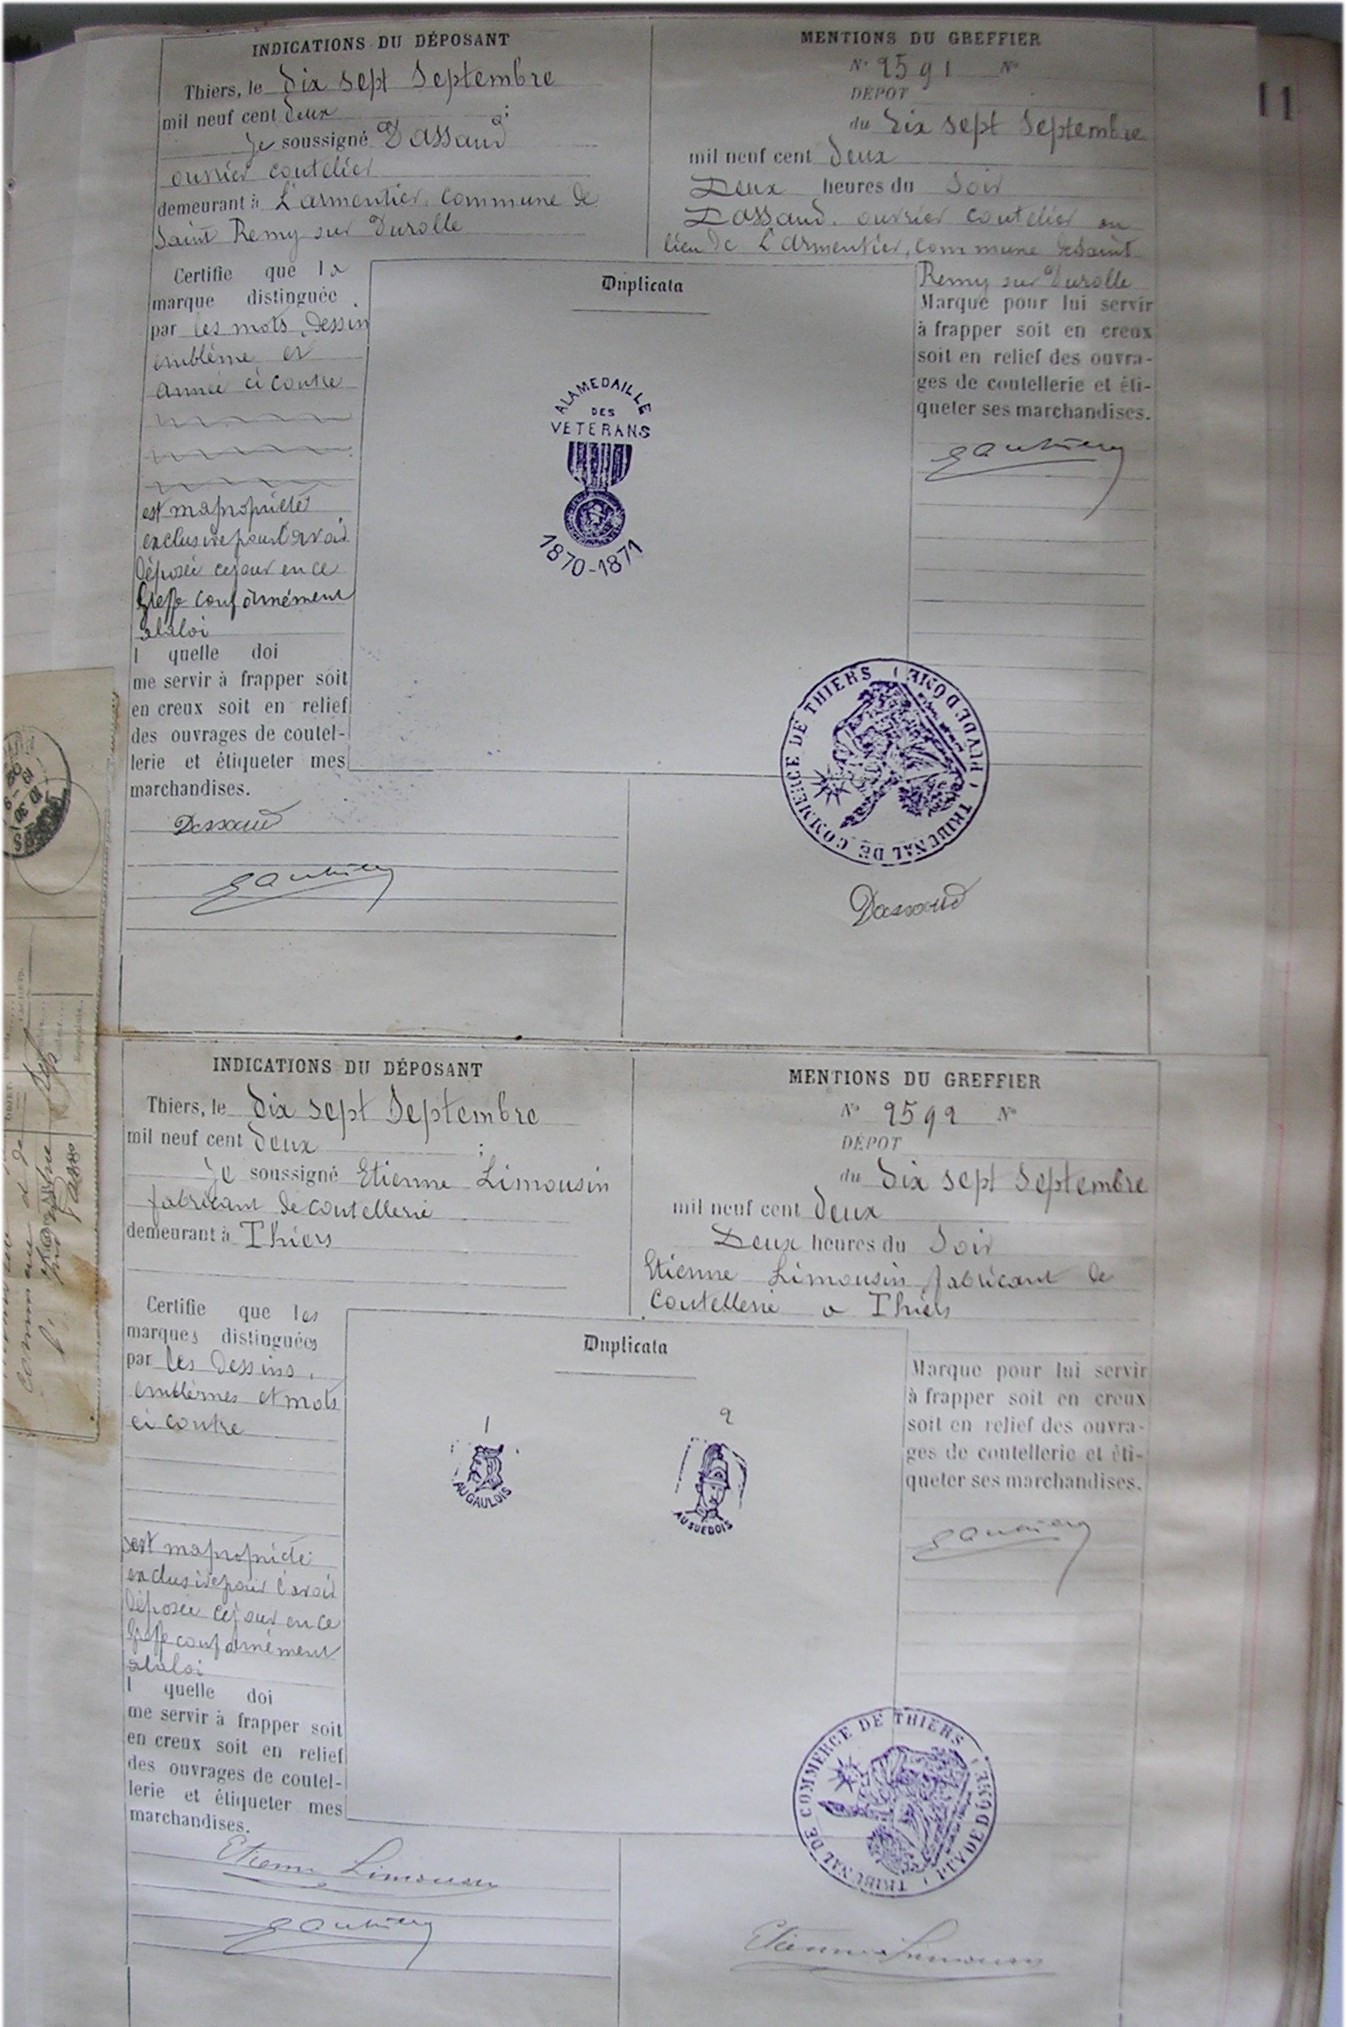 11
INDICATIONS DU DÉPOSANT
Thiers, le dix sept Septembre
mil neuf cent deux ;
Je soussigné Dassaud
ouvrier coutelier
demeurant à L'armentier, commune de
Saint Remy sur Durolle
Certifie que la
marque distinguée
par les mots, dessin
emblème et
année ci contre
est ma propriété
exclusive pour l'avoir
déposée ce jour en ce
Greffe conformément
à la loi
l quelle doi
me servir à frapper soit
en creux soit en relief
des ouvrages de coutel-
lerie et étiqueter mes
marchandises.
Dassaud
Gauthier
MENTIONS DU GREFFIER
N° 2591 N°
DÉPOT
du dix sept Septembre
mil neuf cent deux
Deux heures du Soir
Dassaud, ouvrier coutelier au
lieu de L'armentier, commune de Saint
Remy sur Durolle
Marque pour lui servir
à frapper soit en creux
soit en relief des ouvra-
ges de coutellerie et éti-
queter ses marchandises.
Gauthier
Duplicata
A LA MEDAILLE
DES
VETERANS
1870-1871
TRIBUNAL DE COMMERCE DE THIERS ( PUY DE DOME )
Dassaud
INDICATIONS DU DÉPOSANT
Thiers, le dix sept Septembre
mil neuf cent deux ;
Je soussigné Etienne Limousin
fabricant de coutellerie
demeurant à Thiers
Certifie que les
marques distinguées
par les dessins,
emblèmes et mots
ci contre
est ma propriété
exclusive pour l'avoir
déposée ce jour en ce
Greffe conformément
à la loi
l quelle doi
me servir à frapper soit
en creux soit en relief
des ouvrages de coutel-
lerie et étiqueter mes
marchandises.
Etienne Limousin
Gauthier
MENTIONS DU GREFFIER
N° 2592 N°
DÉPOT
du dix sept Septembre
mil neuf cent deux
Deux heures du Soir
Etienne Limousin fabricant de
coutellerie a Thiers
Marque pour lui servir
à frapper soit en creux
soit en relief des ouvra-
ges de coutellerie et éti-
queter ses marchandises.
Gauthier
Duplicata
1
AU GAULOIS
2
AU SUEDOIS
TRIBUNAL DE COMMERCE DE THIERS ( PUY DE DOME )
Etienne Limousin